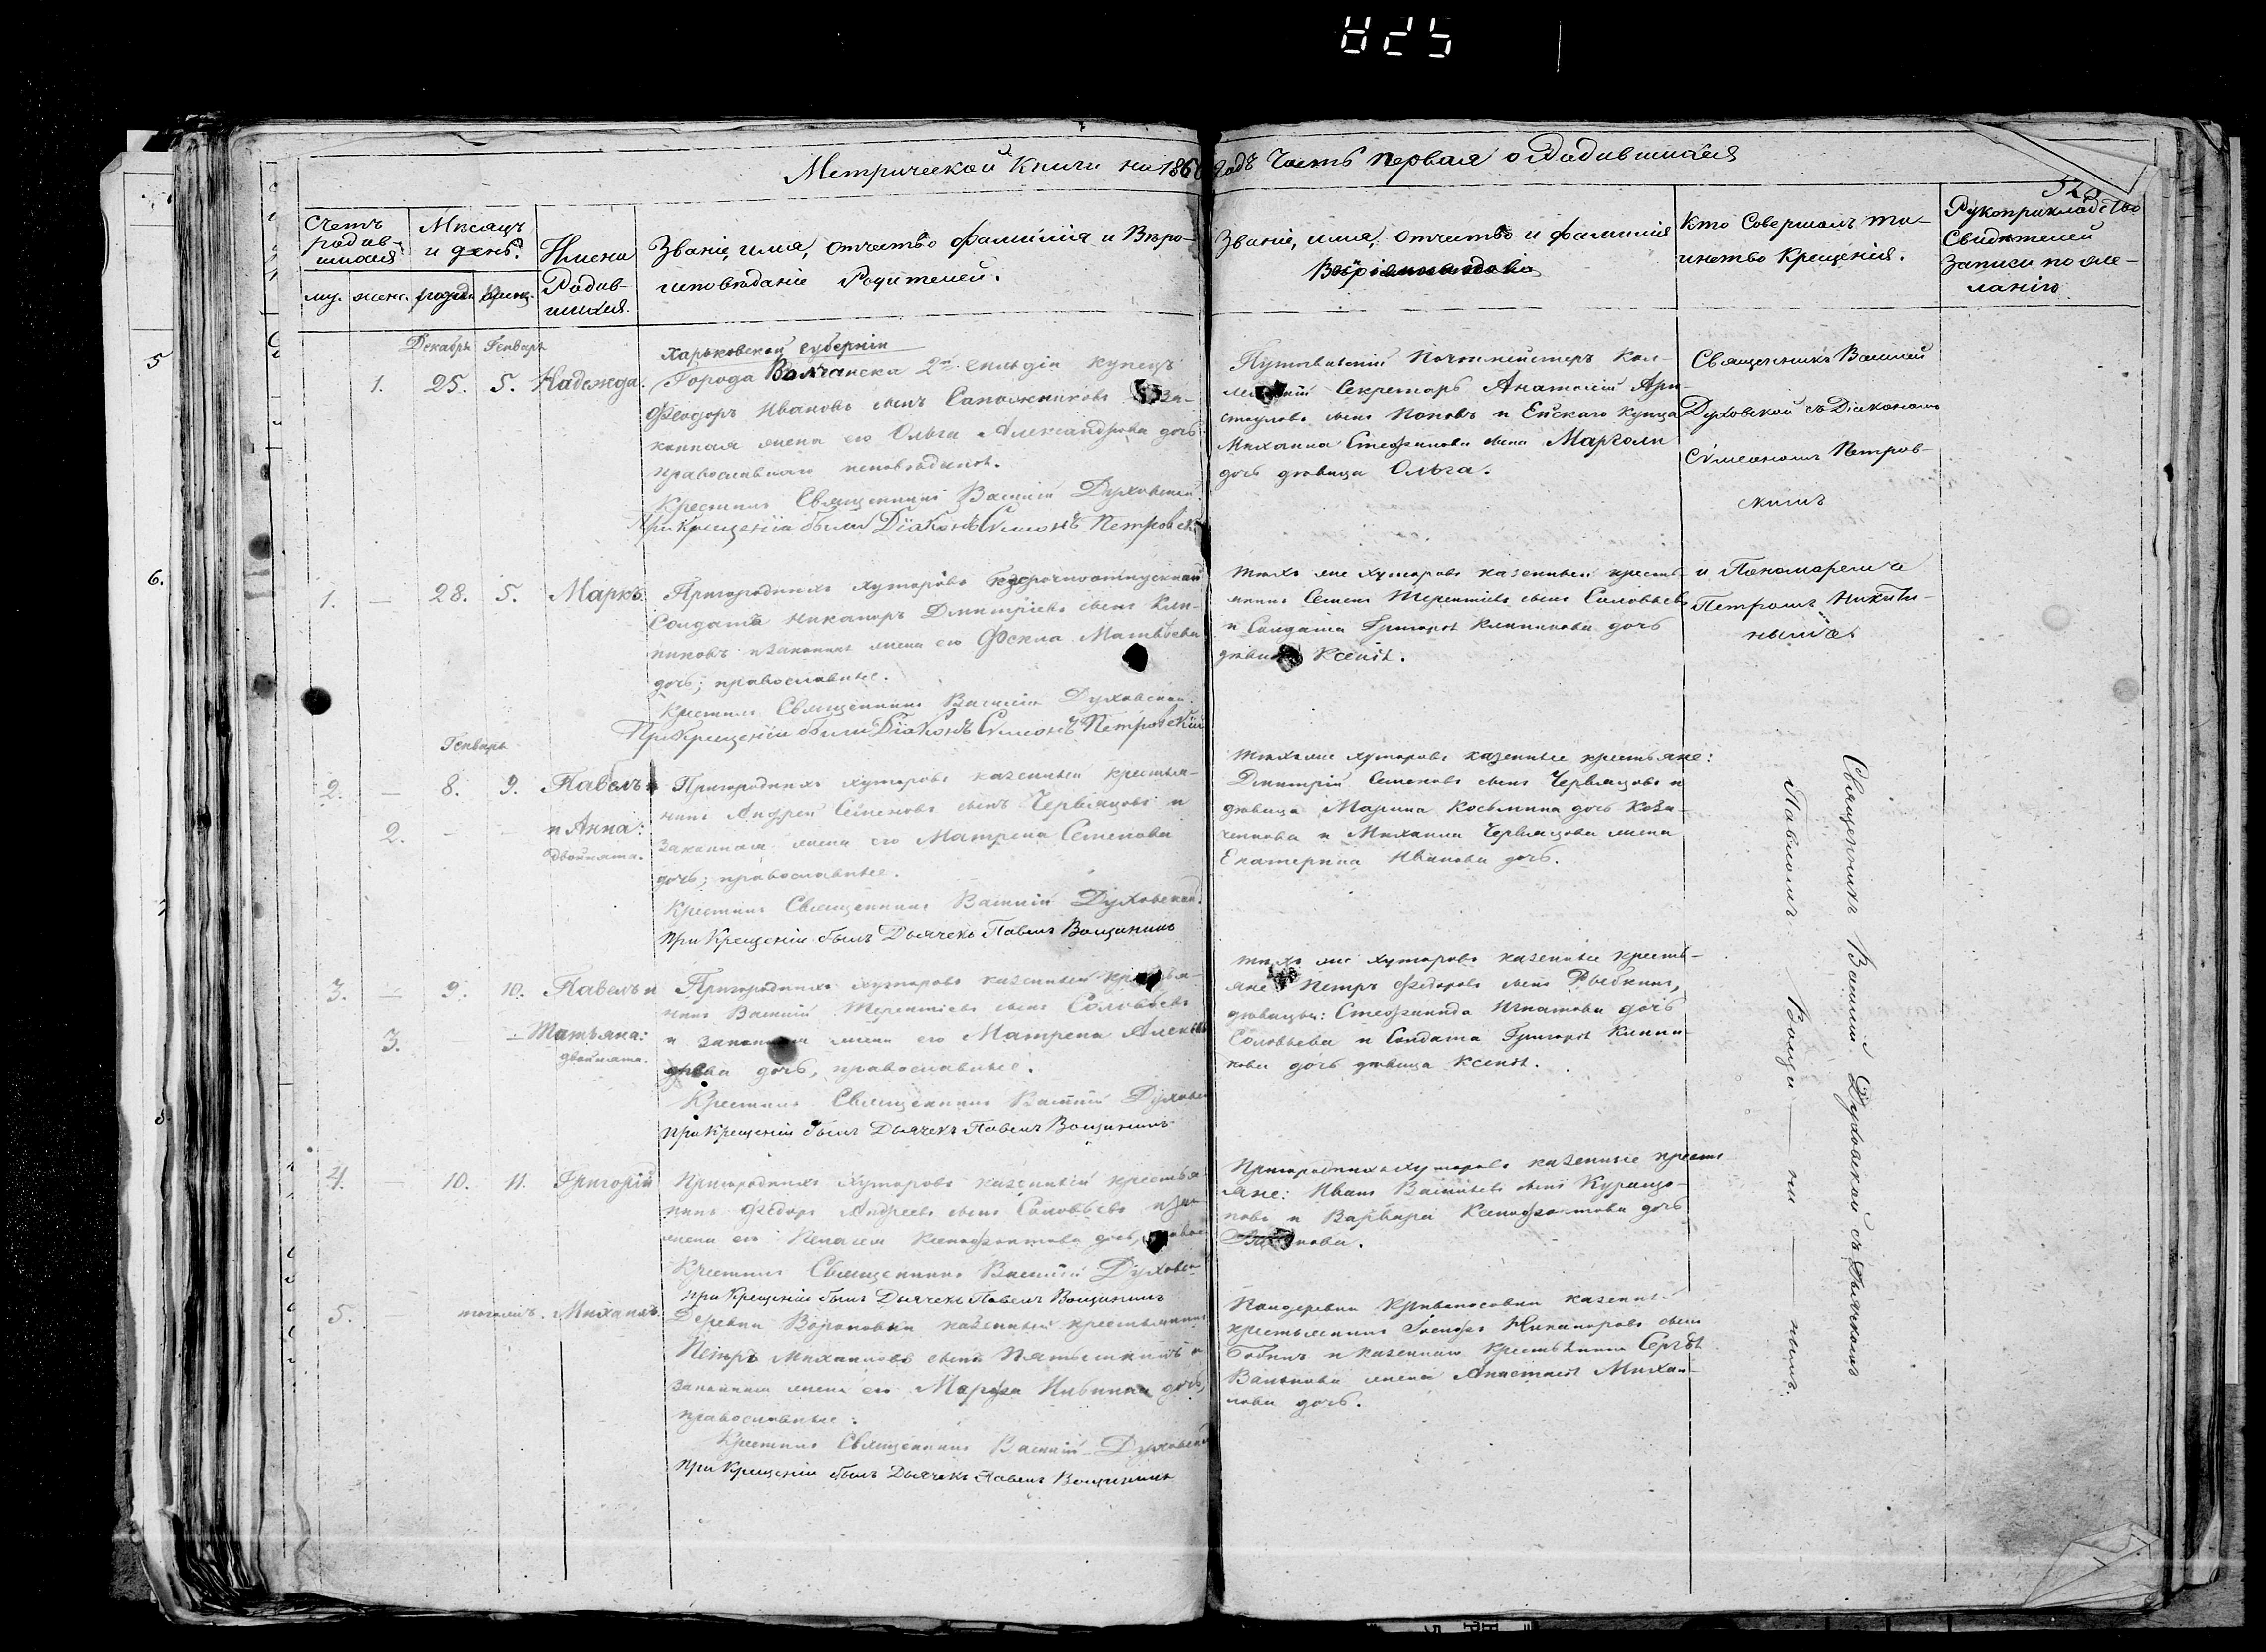 Метрической Книги на 186 годъ Часть первая о Родившихся
Счетъ родив-шихся
му. жен.
Мѣсяцъ и день.
рожд. крещ.
Имена Родив-шихся.
Званіе, имя, отчество фамилія и Вѣро-
исповѣданіе Родителей.
Званіе, имя, отчество и фамилія
Кто Совершалъ та-
инство Крещенія.
Рукоприкладство
Свидѣтелей
Записи по же-
ланію
Декабрь Генварь
1. 25. 5. Надежда.
Харьковской губерніи
Города Волчанска 2й гильдіи купецъ
Феодоръ Ивановъ сынъ Сапожниковъ за-
конная жена его Ольга Александрова дочь
православнаго исповѣданія.
Крестилъ Священникъ Василій Духовской.
При крещеніи были Діаконъ Сѵмеонъ Петровскій
Путивльскій Почтмейстеръ Кол-
Секретарь Анатолій Ари-
сынъ Поповъ и Ейскаго Купца
Михаила Стефанова сына Марголи
дочь дѣвица Ольга.
Священникъ Василій
Духовской съ Діакономъ
Сѵмеономъ Петров-
скимъ
1. — 28. 5. Маркъ.
Пригородныхъ хуторовъ безсрочноотпускной
Солдатъ Никаноръ Дмитріевъ сынъ Клин-
никовъ и законная жена его Фекла Матвѣева
дочь; православные.
Крестилъ Священникъ Василій Духовской.
При Крещеніи были Діаконъ Сѵмеонъ Петровскій
тѣхъ же хуторовъ казенный кресть-
янинъ Семенъ Терентіевъ сынъ Соловьевъ
и Солдата Григорія Клинникова дочь
дѣвица Ксенія.
и Пономаремъ
Петромъ Никити-
нымъ
Генварь
2. — 8. 9. Павелъ
2. - - и Анна:
двойнята.
Пригородныхъ хуторовъ казенный крестья-
нинъ Андрей Семеновъ сынъ Червяцовъ и
законная жена его Матрена Семенова
дочь; православные.
Крестилъ Священникъ Василій Духовской.
При Крещеніи былъ Дьячекъ Павелъ Вощининъ
тѣхъ же хуторовъ казенные крестьяне:
Дмитрій Семеновъ сынъ Червяцовъ и
дѣвица Марина Косьмина дочь Коза-
ченкова и Михаила Червяцова жена
Екатерина Иванова дочь.
3. — 9. 10. Павелъ и
3. — Татьяна:
двойнята.
Пригородныхъ хуторовъ казенный крестья-
нинъ Василій Терентіевъ сынъ Соловьевъ
и законная жена его Матрена
дочь, православные.
Крестилъ Священникъ Василій Духовской
При Крещеніи былъ Дьячекъ Павелъ Вощининъ
тѣхъ же хуторовъ казенные кресть-
яне Петръ Федоровъ сынъ Рыбкинъ,
дѣвицы: Стефанида Игнатова дочь
Соловьева и Солдата Григорія Клинни-
кова дочь дѣвица Ксенія.
4. — 10. 11. Григорій
Пригородныхъ хуторовъ казенный крестья
нинъ Федоръ Андреевъ сынъ Соловьевъ и зак
жена его Пелагея Ксенофонтова дочь,
Крестилъ Священникъ Василій Духовск
При Крещеніи былъ Дьячекъ Павелъ Вощининъ
Пригородныхъ хуторовъ казенные кресть
яне: Иванъ Васильевъ сынъ
и Варвара Ксенофонтова дочь
5. тогожъ. Михаилъ.
Деревни Вороновки казенный крестьянинъ
Петръ Михаиловъ сынъ и
законная жена его Марфа дочь,
православные:
Крестилъ Священникъ Василій Духовской
При Крещеніи былъ Дьячекъ Павелъ Вощининъ
казенный
крестьянинъ Іосифъ Никаноровъ сынъ
и казеннаго крестьянина Сергѣя
жена Анастасія Михаи-
лова дочь.
Священникъ Василій Духовской съ Дьячкомъ
Павломъ Вощи — ни — нымъ.